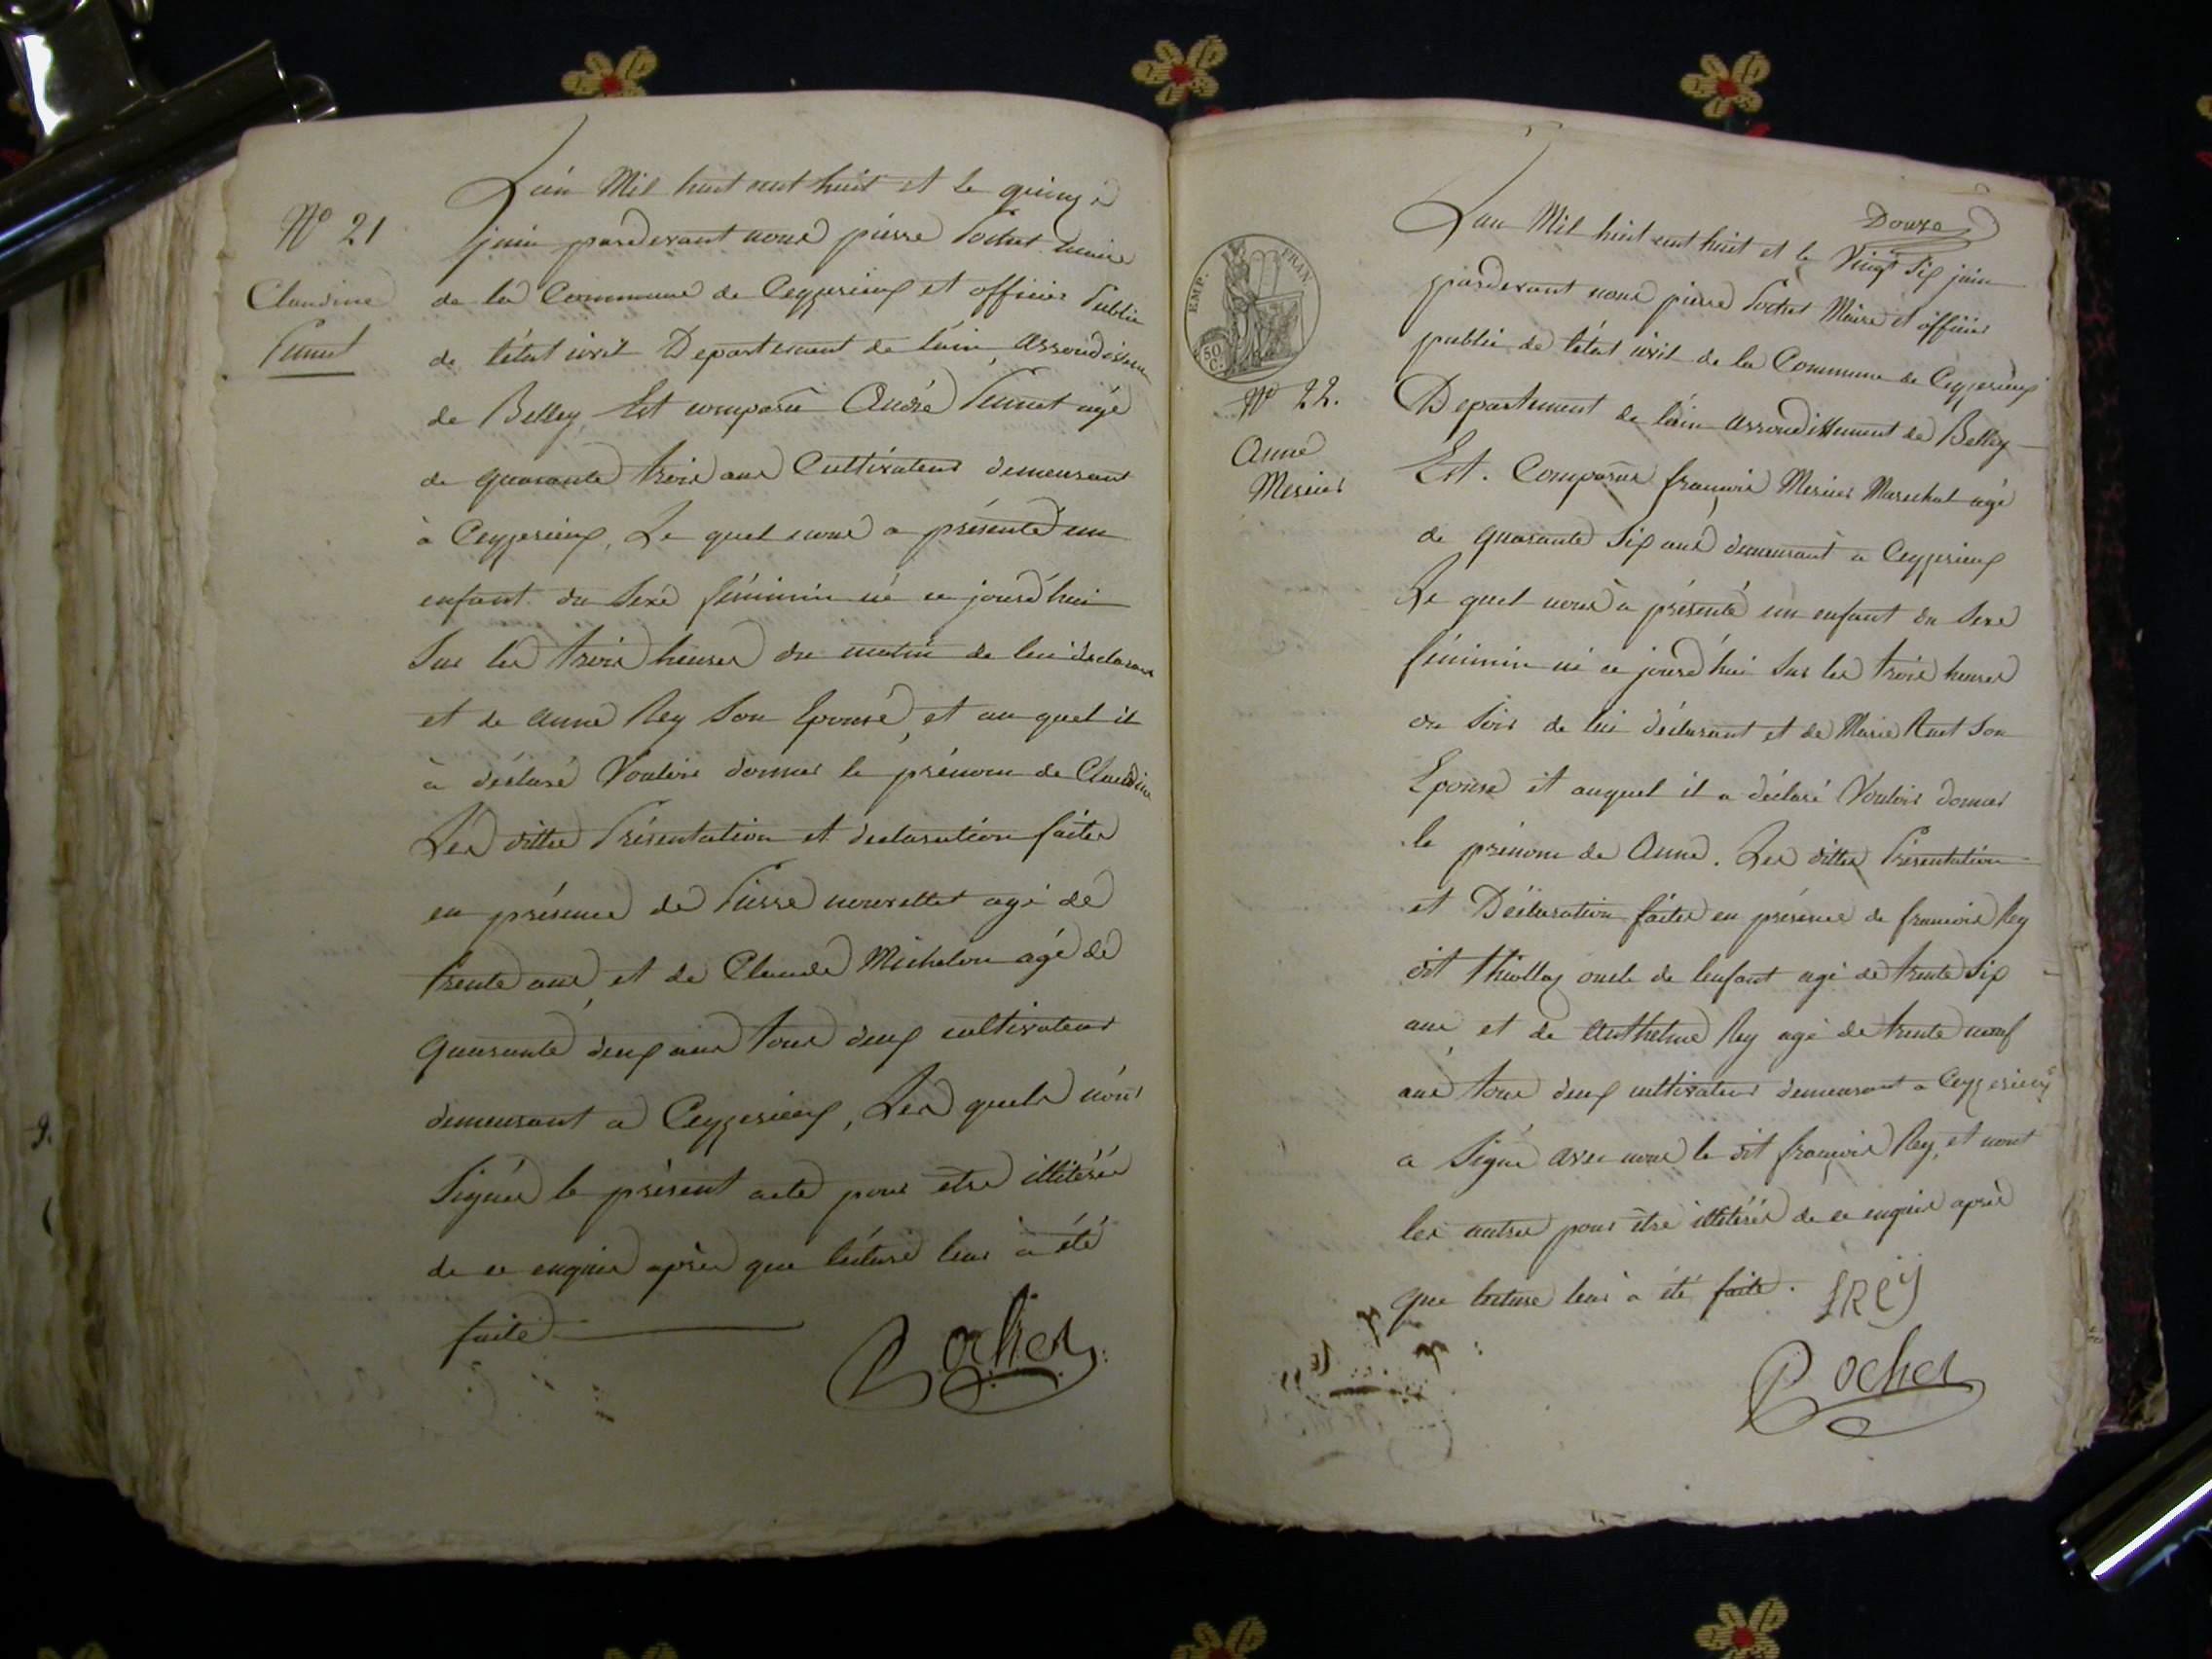 N° 21
Claudine
L'an Mil huit cent huit et le quinze
juin pardevant nous pierre Pochet maire
de la Commune de Ceyzerieux et officier Public
de l'état civil Departement de l'ain, arrondissem
de Belley Est comparu André agé
de quarante trois ans Cultivateur demeurant
à Ceyzerieux, Le quel nous a présenté un
enfant du Sexe féminin né ce jourd'hui
Sur les trois heures du matin de lui déclarant
et de anne Rey Son Epouse, et au quel il
à déclaré Vouloir donner le prénom de Claudine
Les dittes Présentation et declaration faites
en présence de Pierre agé de
trente ans, et de Claude Michelon agé de
quarante deux ans tous deux cultivateurs
demeurant a Ceyzerieux, Les quels n'ont
Signés le présent acte pour etre illitérés
de ce enquis après que lécture leur à été
faite
Pochet
Douze
EMP. FRAN
50 C.
N° 22.
Anne
Mercier
L'an Mil huit cent huit et le Vingt Six juin
pardevant nous pierre Pochet Maire et officier
public de l'état civil de la Commune de Ceyzerieux
Departement de l'ain arrondissement de Belley
Est. Comparue françois Mercier Marechal agé
de quarante Six ans demeurant a Ceyzerieux
Le quel nous à présenté un enfant du Sexe
féminin né ce jourd'hui Sur les trois heures
du Soir de lui déclarant et de Marie Son
Epouse et auquel il a déclaré Vouloir donner
le prénom de Anne. Les dittes Présentation
et Déclaration faites en présence de francois Rey
dit oncle de lenfant agé de trente Six
ans, et de Anthelme Rey agé de trente neuf
ans tous deux cultivateurs demeurant a Ceyzerieux
a Signé avec nous le dit françois Rey, et nont
les autres pour être illitérés de ce enquis après
que lecture leur a été faite.
f Rey
Pochet